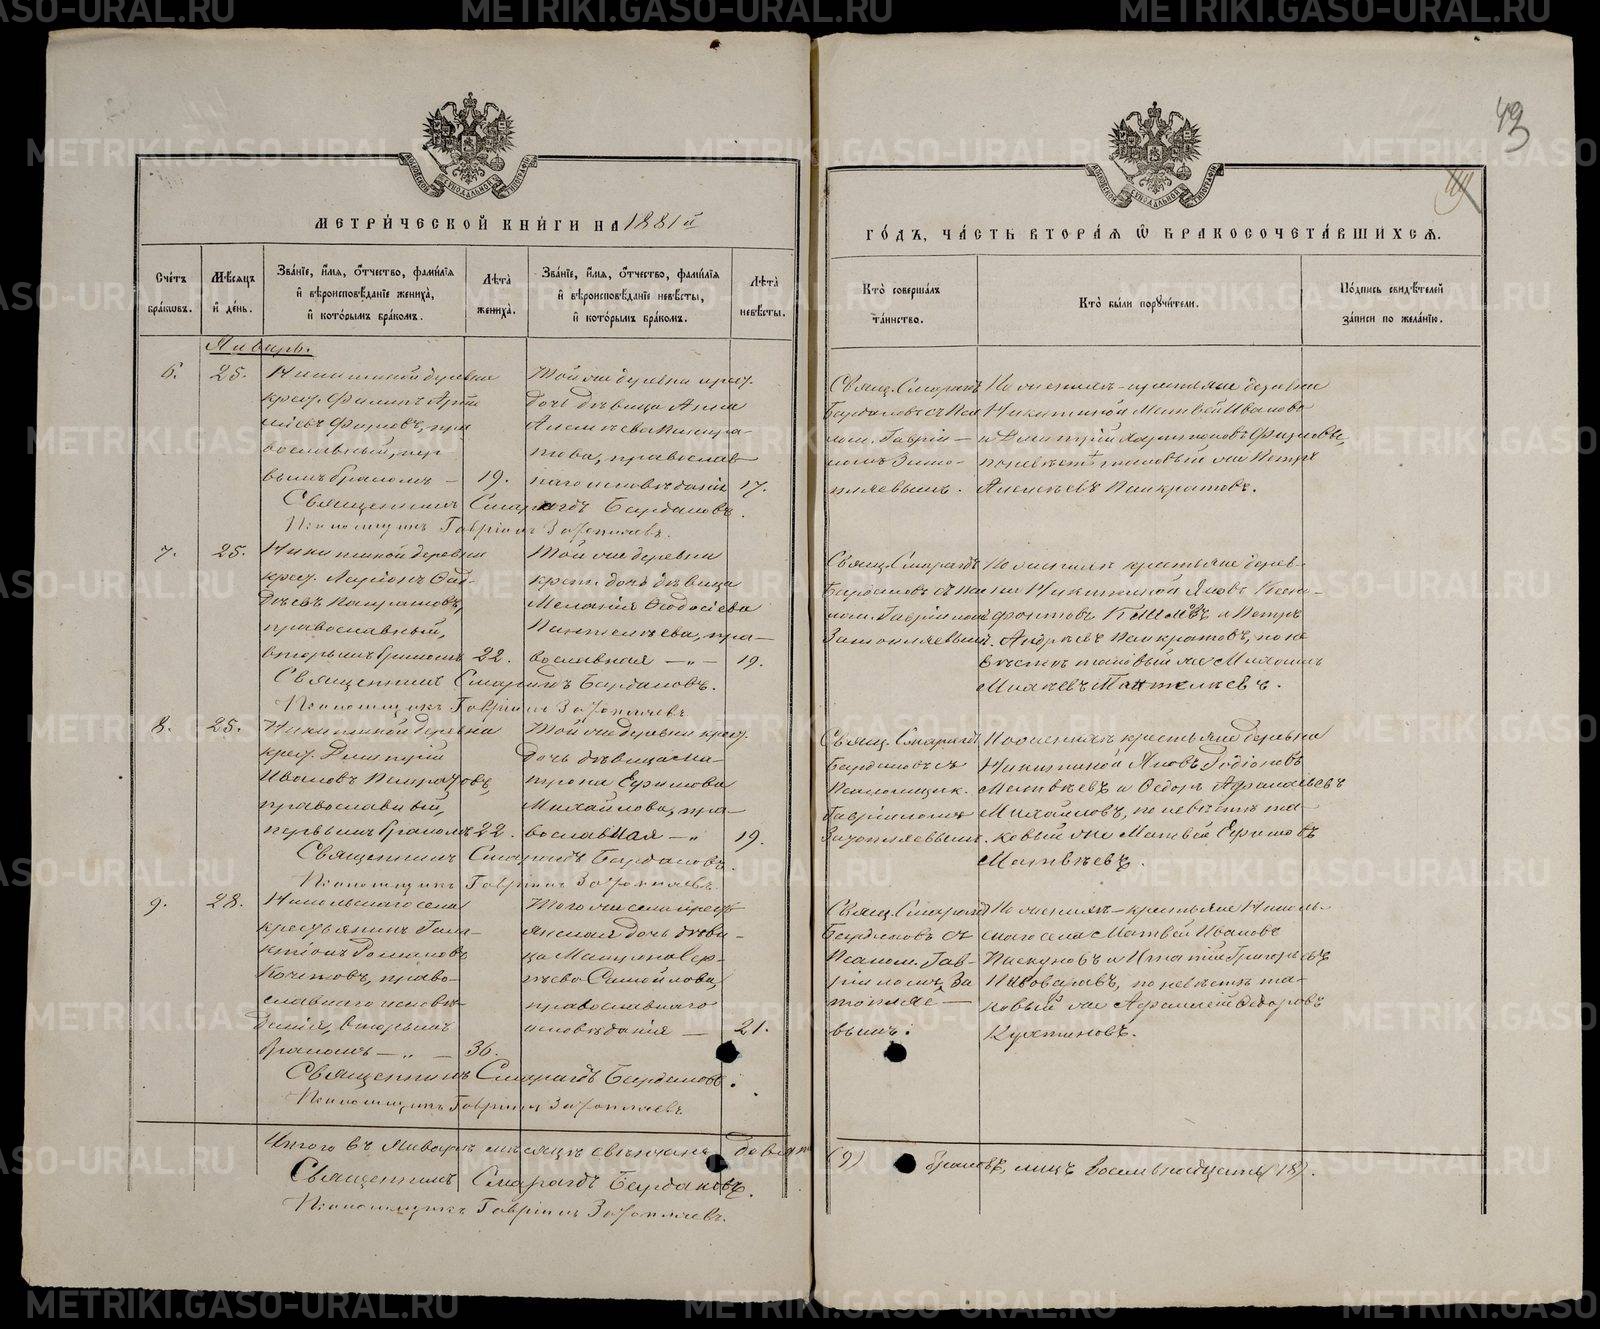 43
МЕТРИ́ЧЕСКОЙ КНИ́ГИ НА 1881й
ГО́ДЪ, ЧА́СТЬ ВТОРА́Я Ѡ БРАКОСОЧЕТА́ВШИХСЯ.
Сче́тъ бра́ковъ.
Мѣ́сяцъ и де́нь.
Зва́нїе, и́мя, ѻ́тчество, фами́лїя и вѣроисповѣ́данїе жениха̀, и кото́рымъ бра́комъ.
Лѣта̀ жениха̀.
Зва́нїе, и́мя, ѻ́тчество, фами́лїя и вѣроисповѣ́данїе невѣ́сты, и кото́рымъ бра́комъ.
Лѣта̀ невѣ́сты.
Кто̀ соверша́лъ та́инство.
Кто̀ бы́ли поручи́тели.
По́дпись свидѣ́телей за́писи по жела́нїю.
Январь.
6.
25.
Никитиной деревни
крест.
православный, пер
вымъ бракомъ —
19.
Той же деревни крест.
дочь дѣвица Анна
Алексѣева Панкра-
това, православ
наго исповѣданія
17.
Свящ. Смарагдъ
Бардаковъ съ Пса
лом. Гаврiи-
ломъ Зато-
пляевымъ.
По женихѣ - крестьяне деревни
Никитиной Матвей Иванова
и Дмитрій Харитоновъ Фирсовы,
по невѣстѣ таковый же Петръ
Алексѣевъ Панкратовъ.
Священникъ Смарагдъ Бардаковъ.
Псаломщикъ Гавріилъ Затопляевъ.
7.
25.
Никитиной деревни
крест. Ларіонъ
Панкратовъ,
православный,
вторымъ бракомъ
22.
Той же деревни
крест. дочь дѣвица
Меланія Ѳеодосіева
Пантелѣева, пра-
вославная — „ —
19.
Свящ. Смарагдъ
Бардаковъ съ Пса
лом. Гавріиломъ
Затопляевымъ.
По женихѣ крестьяне дерев-
ни Никитиной Яковъ
и Петръ
Андреевъ Панкратовъ, по не
вѣстѣ таковый же
Пантелѣевъ.
Священникъ Смарагдъ Бардаковъ.
Псаломщикъ Гавріилъ Затопляевъ.
8.
25.
Никитиной деревни
крест. Дмитрій
Ивановъ Панкратовъ,
православный,
первымъ бракомъ
22.
Той же деревни крест.
дочь дѣвица Ма-
трона Ефимова
Михайлова, пра-
вославная — „
19.
Свящ. Смарагдъ
Бардаковъ съ
Псаломщик.
Гавріиломъ
Затопляевымъ.
По женихѣ крестьяне деревни
Никитиной Яковъ Родіоновъ
Матвѣевъ и Ѳедоръ Афанасьевъ
Михайловъ, по невѣстѣ та-
ковый же Матвей Ефимовъ
Матвѣевъ.
Священникъ Смарагдъ Бардаковъ.
Псаломщикъ Гавріилъ Затопляевъ.
9.
28.
Никольскаго села
крестьянинъ Гала-
ктіонъ
Кочневъ, право-
славнаго исповѣ-
данія, вторымъ
бракомъ — „ —
36.
Того же села крестъ
янская дочь дѣви-
ца Матрона Сер-
гѣева Самойлова,
православнаго
исповѣданія —
21.
Свящ. Смарагдъ
Бардаковъ съ
Псалом. Гав-
ріиломъ За
топляе-
вымъ.
По женихѣ - крестьяне Николь-
скаго села Матвей Ивановъ
Пискуновъ и Игнатій Григорьевъ
Пивоваровъ, по невѣстѣ та-
ковый же Ѳедоровъ
Священникъ Смарагдъ Бардаковъ.
Псаломщикъ Гавріилъ Затопляевъ
Итого въ Январѣ мѣсяцѣ свѣнчано девять (9) браковъ, лицъ восемнадцать (18).
Священникъ Смарагдъ Бардаковъ.
Псаломщикъ Гавріилъ Затопляевъ.
METRIKI.GASO-URAL.RU